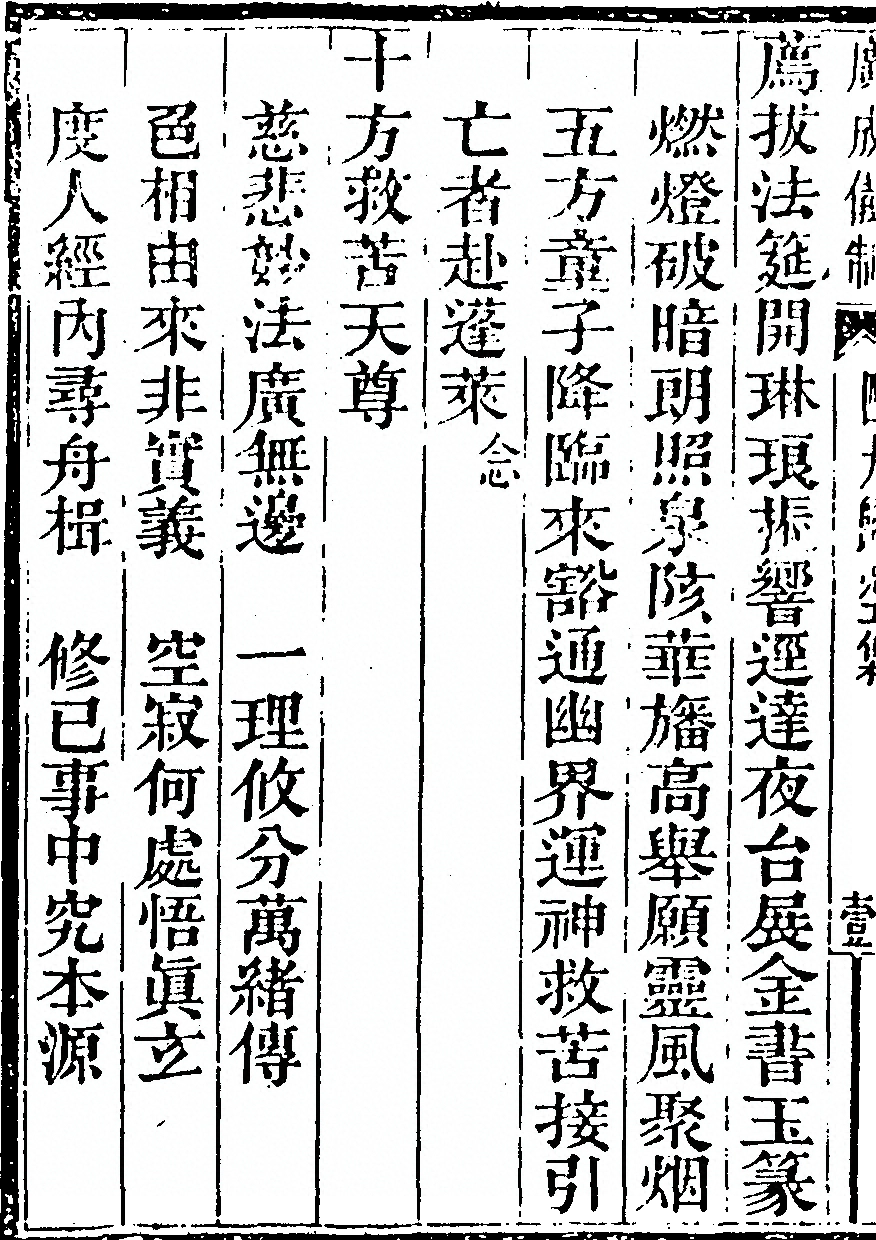 廣成儀制 壹
薦拔法筵開琳琅振響逕達夜台展金書玉篆
燃燈破暗朗照泉陔華旛高舉願靈風聚烟
五方童子降臨來豁通幽界運神救苦接引
亡者赴蓬萊 念
十方救苦天尊
慈悲妙法廣無邊 一理攸分萬緒傳
色相由來非實義 空寂何處悟眞立
度人經內尋舟楫 修已事中究本源